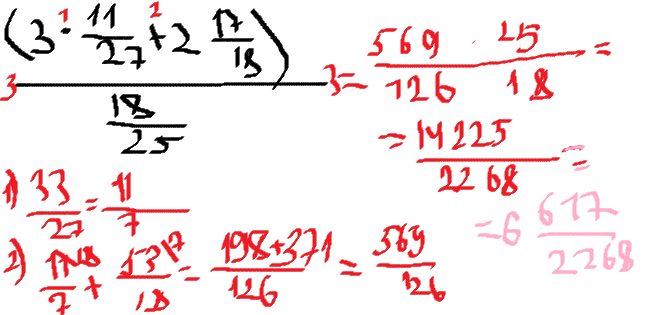 (3 · 11/27 + 2 17/18) 1 2
3 ─── 3 = 569/126 · 25/18 =
18/25
= 14225/2268 =
= 6 617/2268
1) 33/27 = 11/7
2) 11/7 18 + 53/18 17 = 198+371/126 = 569/126